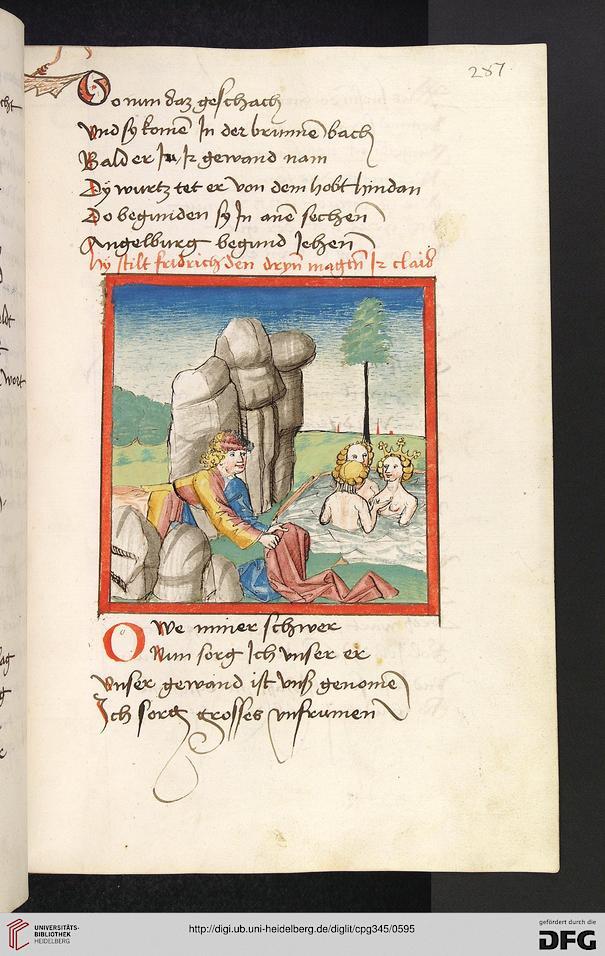 287.
So nun daz geschach
Vnd sy komē In der brunnē bach
Bald er In Ir gewand nam
Dÿ wurtz tet er von dem hobt hindan
Do begunden sy In anē sechen
Angelburg begund Jehen
Hÿ stilt fridrich den dryn̄ magtn̄ Ir claid
Owe miner schwer
Nun sorg Ich vnser er
Vnser gewand ist vnß genomē
Ich sorg grosses vnfrumen
UNIVERSITÄTS-
BIBLIOTHEK
HEIDELBERG
http://digi.ub.uni-heidelberg.de/diglit/cpg345/0595
gefördert durch die
DFG